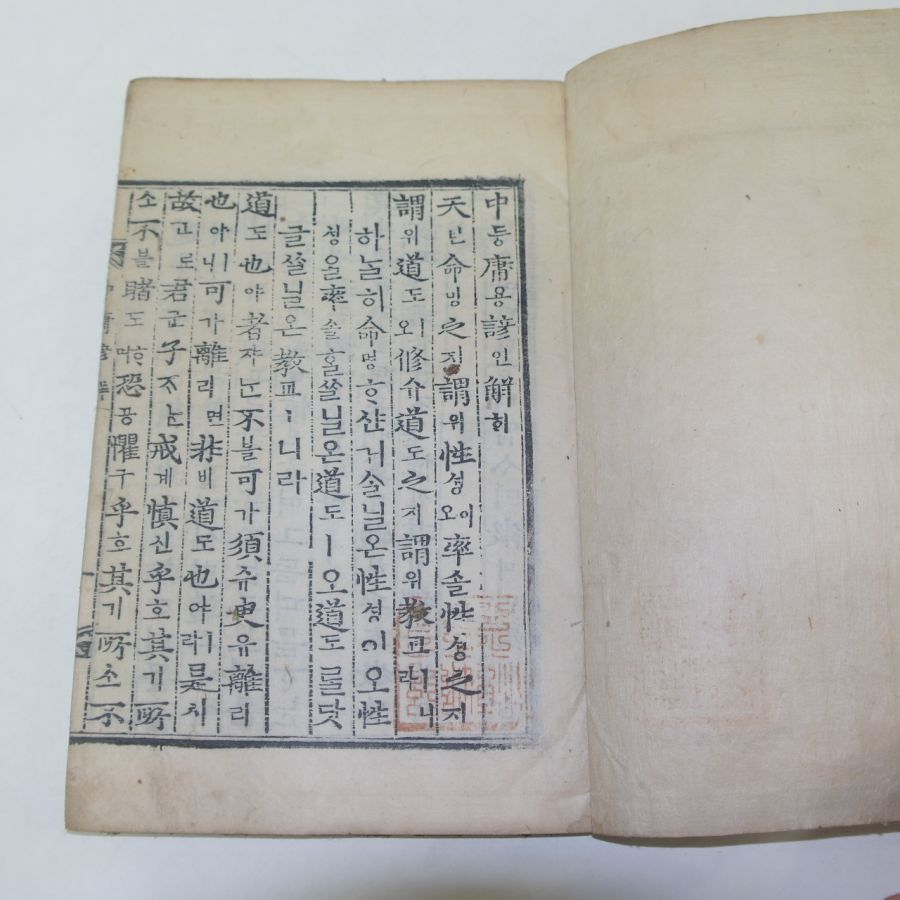 中듕庸용諺언解ᄒᆡ
天텬命명之지謂위性셩이오率솔性셩之지
謂위道도ㅣ오修슈道도之지謂위敎교ㅣ라니
하ᄂᆞᆯ히命명ᄒᆞ샨거슬닐온性셩이오性
셩을率솔ᄒᆞᆯᄊᆞᆯ닐온道도ㅣ오道도ᄅᆞᆯ닷
글ᄊᆞᆯ닐온敎교ㅣ니라
道도也야者쟈ᄂᆞᆫ不블可가須슈臾유離리
也야ㅣ니可가離리면非비道도也야ㅣ라是시
故고로君군子ᄌᆞᄂᆞᆫ戒계愼신乎호其기所
소不블睹도ᄒᆞ며恐공懼구乎호其기所소不